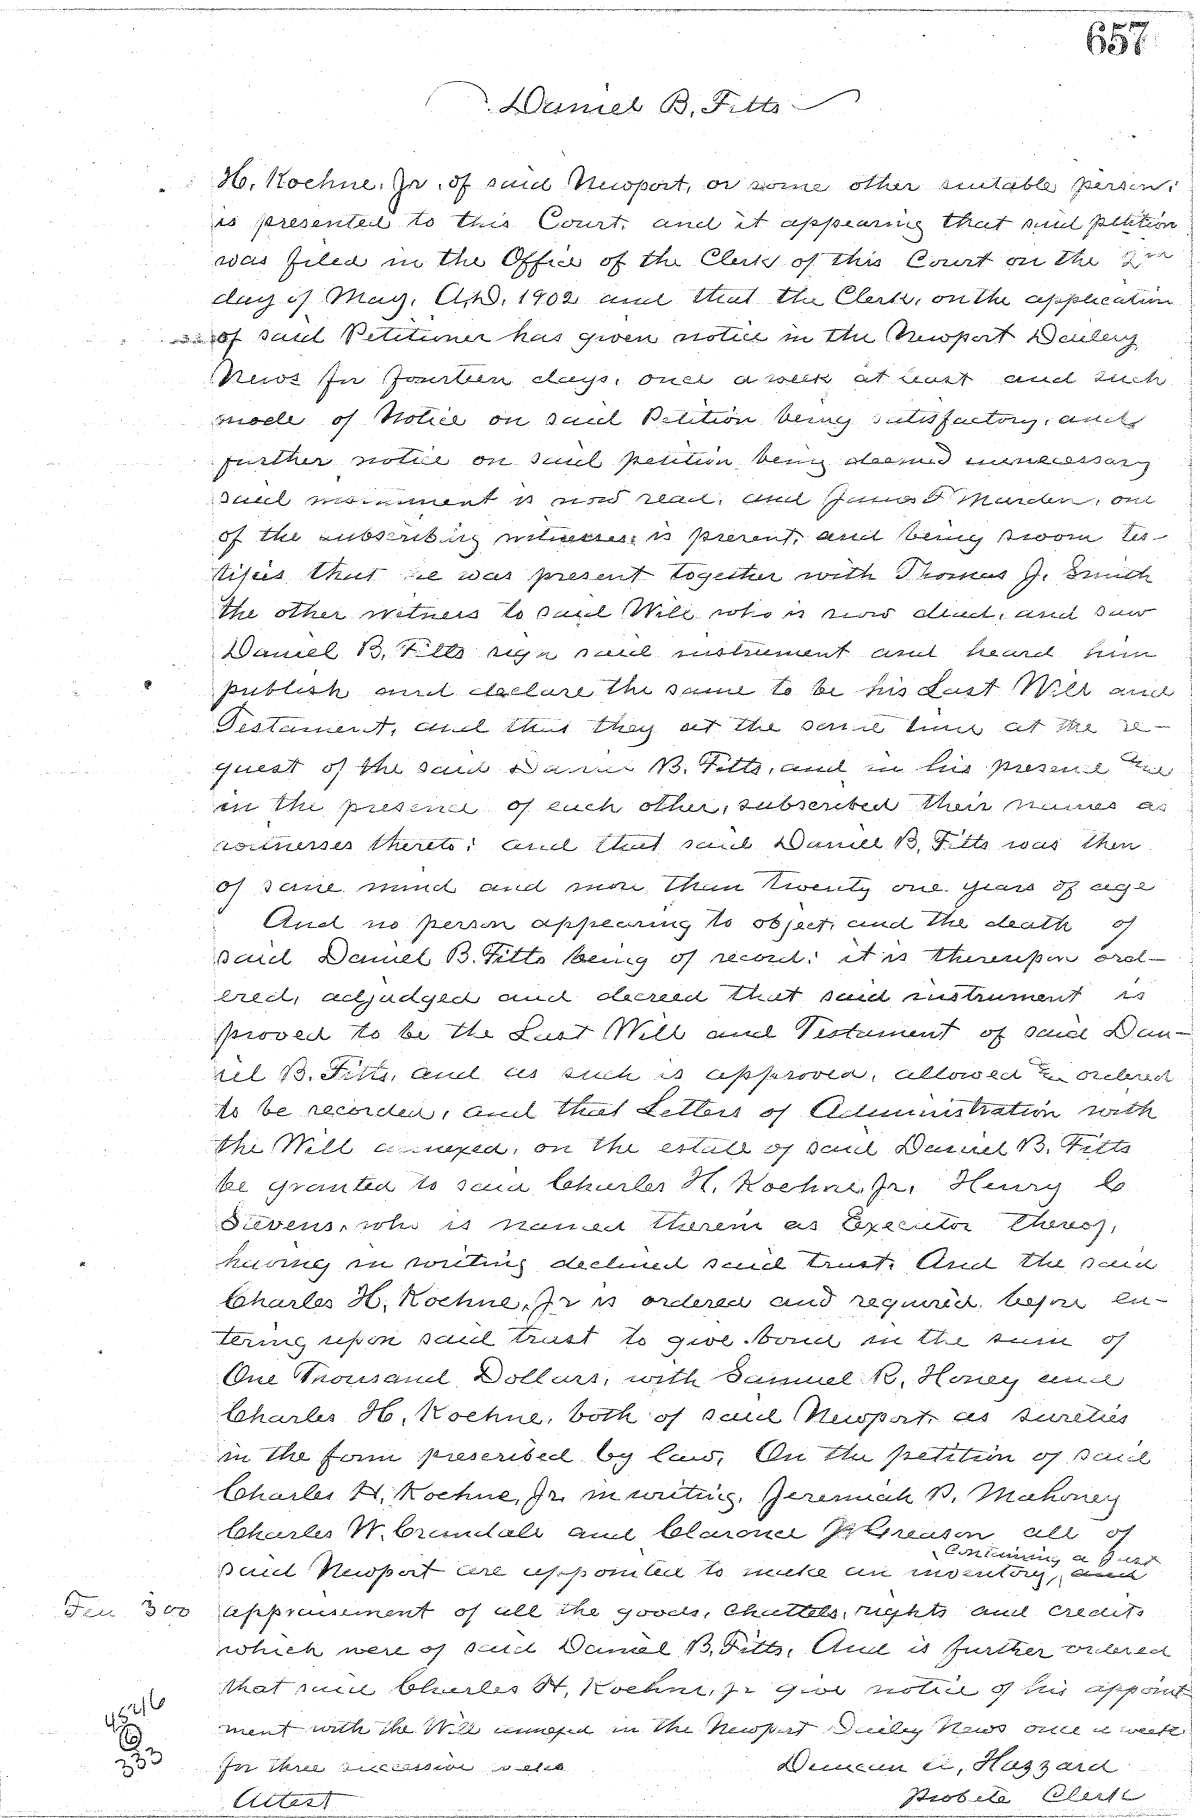 657
Daniel B. Fitts
H. Koehne, Jr. of said Newport, or some other suitable person;
is presented to this Court, and it appearing that said petition
was filed in the Office of the Clerk of this Court on the 2nd
day of May, A.D. 1902 and that the Clerk, on the application
of said Petitioner has given notice in the Newport Dailey
News for fourteen days, once a week at least and such
mode of Notice on said Petition being satisfactory, and
further notice on said petition being deemed unnecessary
said instrument is now read, and James Marden, one
of the subscribing witnesses; is present, and being sworn tes-
tifies that he was present together with Thomas J. Smith
the other witness to said Will who is now dead, and saw
Daniel B. Fitts sign said instrument and heard him
publish and declare the same to be his Last Will and
Testament, and that they at the same time at the re-
quest of the said Daniel B. Fitts, and in his presence and
in the presence of each other, subscribed their names as
witnesses thereto; and that said Daniel B. Fitts was then
of sane mind and more than twenty one years of age
And no person appearing to object, and the death of
said Daniel B. Fitts being of record; it is thereupon ord-
ered, adjudged and decreed that said instrument is
proved to be the Last Will and Testament of said Dan-
iel B. Fitts, and as such is approved, allowed & ordered
to be recorded, and that Letters of Administration with
the Will annexed, on the estate of said Daniel B. Fitts
be granted to said Charles H. Koehne, Jr, Henry C
Stevens, who is named therein as Executor thereof,
having in writing declined said trust. And the said
Charles H. Koehne, Jr is ordered and required, before en-
tering upon said trust to give bond in the sum of
One Thousand Dollars, with Samuel R. Honey and
Charles H. Koehne, both of said Newport, as sureties
in the form prescribed by law, On the petition of said
Charles H. Koehne, Jr. in writing, Jeremiah P. Mahoney
Charles W. Crandall and Clarence Greason all of
containing a just
said Newport are appointed to make an inventory, and
Fee 300 appraisement of all the goods, chattels, rights and credits
which were of said Daniel B. Fitts, And is further ordered
that said Charles H. Koehne, Jr give notice of his appoint
4546
6
333
ment with the Will annexed in the Newport Dailey News once a week
for three successive weeks Duncan A, Hazzard
Attest Probate Clerk